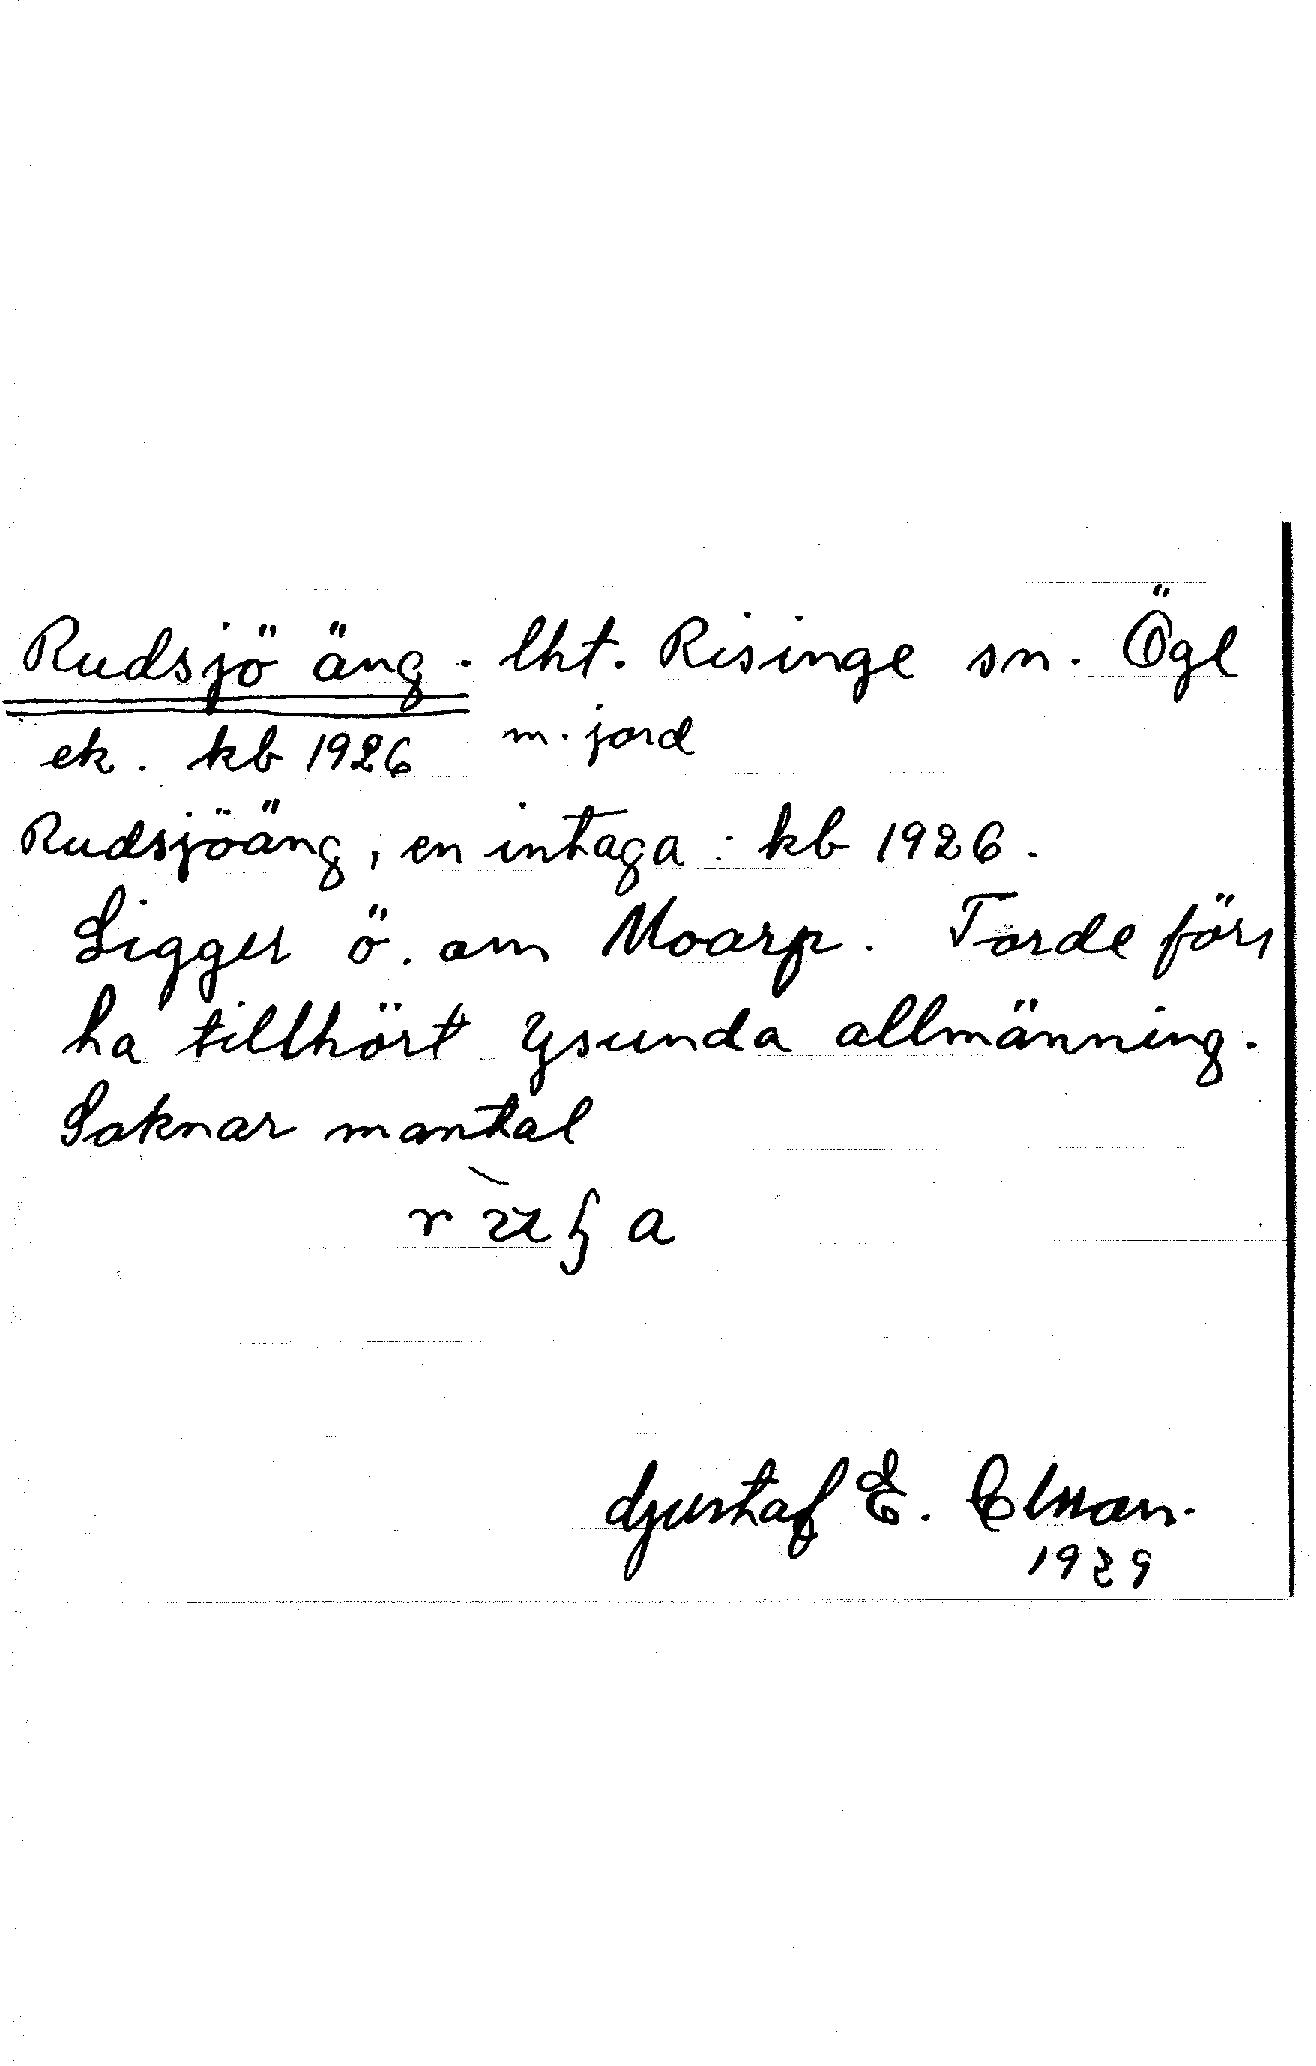 Rudsjö äng. lht. Risinge sn. Ögl
ek. kb 1926 m. jord
Rudsjöäng, en intaga: kb 1926.
Ligger ö. om Moarp. Torde förr
ha tillhört Ysunda allmänning.
Saknar mantal
Gustaf E. Elman.
1929